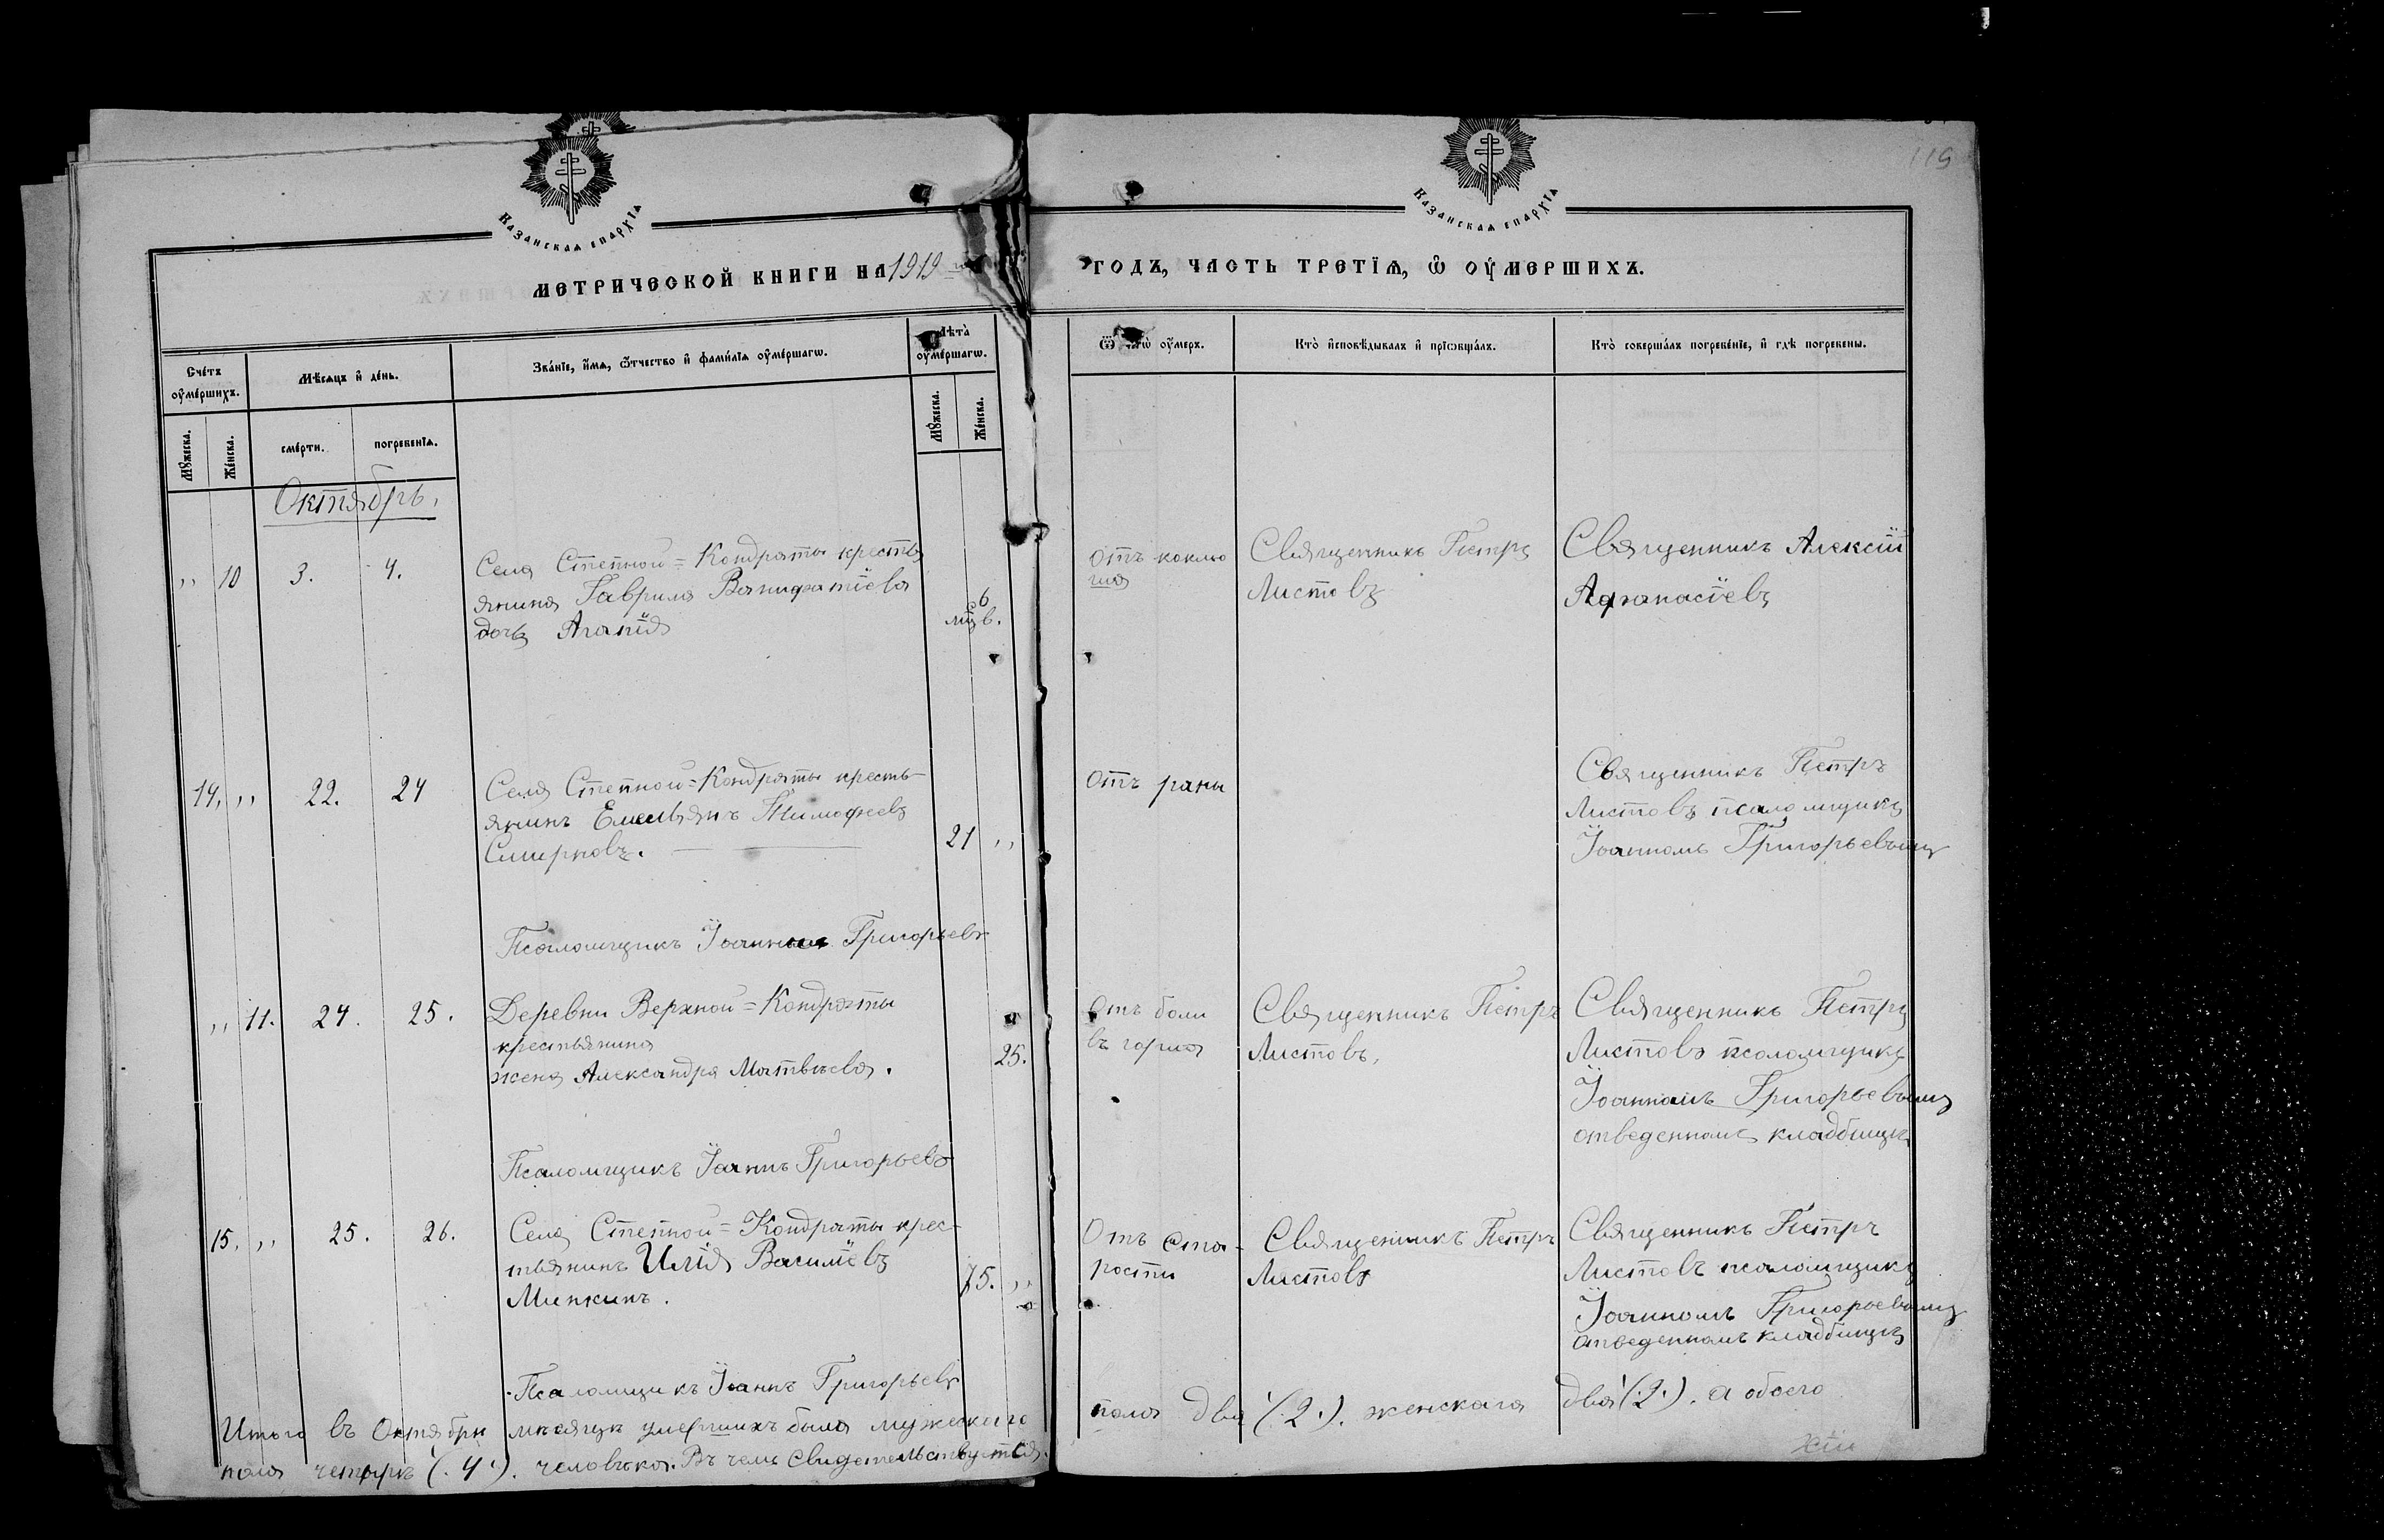 Казанская епархїа
Казанская епархїа
115
метрической книги на 1919
годъ, часть третїѧ, ѡ оумершихъ.
Счетъ оумершихъ.
Мѣсѧцъ и день.
Званїе, имѧ, ѿчество и фамилїа оумершагѡ.
Лѣта оумершагѡ.
Ѿ чегѡ оумеръ.
Кто исповѣдывалъ и прїѡбщалъ.
Кто совершалъ погребенїе, и гдѣ погребены.
Мꙋжеска.
Женска.
смерти.
погребенїѧ.
Мꙋжеска.
Женска.
Октябрь.
„ 10 3. 4.
Села Степной=Кондраты кресть
янина Гаврила Ванифатіева
дочь Агапія
6
мцѣв.
Отъ коклю
ша
Священникъ Петръ
Листовъ
Священникъ Алексій
Афанасіевъ
14, „ 22. 24
Села Степной=Кондраты кресть-
янинъ Емельянъ Тимофеевъ
Смирновъ.
21 „
Отъ раны
Священникъ Петръ
Листовъ псаломщикъ
Іоанномъ Григорьевымъ
Псаломщикъ Іоаннъ Григорьевъ
„ 11. 24. 25.
Деревни Верхной=Кондраты
крестьянина
жена Александра Матвѣева.
25.
Отъ боли
въ горла
Священникъ Петръ
Листовъ,
Священникъ Петръ
Листовъ псаломщикъ
Іоанномъ Григорьевымъ
отведенномъ кладбищѣ
Псаломщикъ Іоаннъ Григорьевъ
15. „ 25. 26.
Села Степной=Кондраты крес-
тьянинъ Илія Василіевъ
Минкинъ.
75. „
Отъ ста-
рости
Священникъ Петръ
Листовъ
Священникъ Петръ
Листовъ псаломщикъ
Іоанномъ Григорьевымъ
отведенномъ кладбищѣ
Псаломщикъ Іоаннъ Григорьевъ
Итого въ Октябрѣ мѣсяцѣ умершихъ было мужескаго
пола два (2.). женскаго два (2.). а обоего
пола четыре (4.). человѣка. Въ чемъ свидетельствуемся.